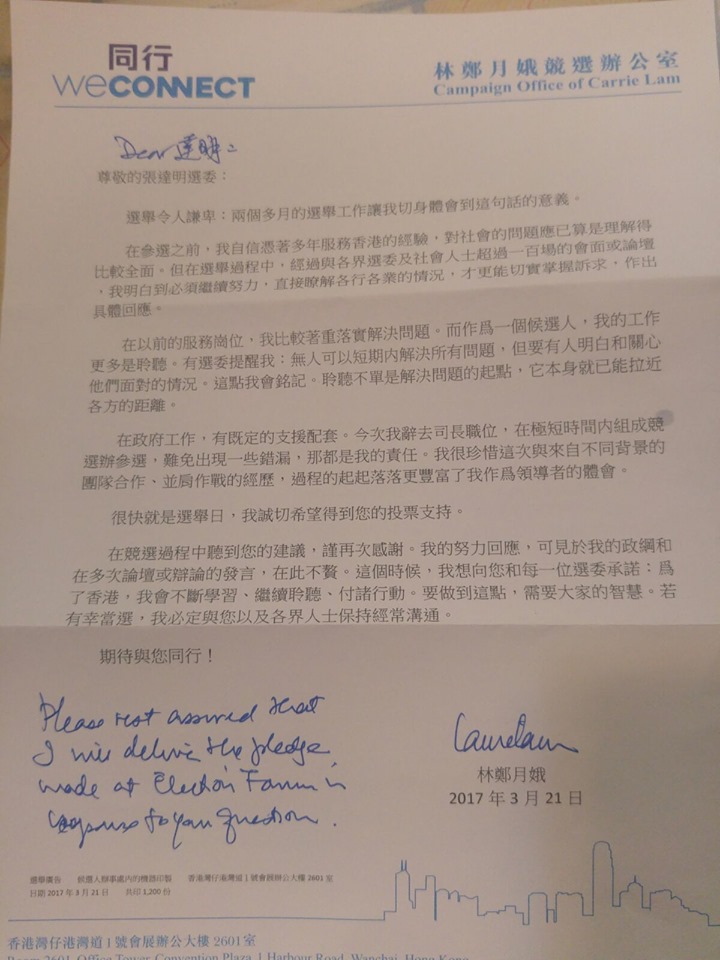 同行
weCONNECT
林鄭月娥競選辦公室
Campaign Office of Carrie Lam
Dear 達明:
尊敬的張達明選委：
選舉令人謙卑：兩個多月的選舉工作讓我切身體會到這句話的意義。
在參選之前，我自信憑著多年服務香港的經驗，對社會的問題應已算是理解得
比較全面。但在選舉過程中，經過與各界選委及社會人士超過一百場的會面或論壇
，我明白到必須繼續努力，直接瞭解各行各業的情況，才更能切實掌握訴求，作出
具體回應。
在以前的服務崗位，我比較著重落實解決問題。而作爲一個候選人，我的工作
更多是聆聽。有選委提醒我：無人可以短期內解決所有問題，但要有人明白和關心
他們面對的情況。這點我會銘記。聆聽不單是解決問題的起點，它本身就已能拉近
各方的距離。
在政府工作，有既定的支援配套。今次我辭去司長職位，在極短時間内組成競
選辦參選，難免出現一些錯漏，那都是我的責任。我很珍惜這次與來自不同背景的
團隊合作、並肩作戰的經歷，過程的起起落落更豐富了我作爲領導者的體會。
很快就是選舉日，我誠切希望得到您的投票支持。
在競選過程中聽到您的建議，謹再次感謝。我的努力回應，可見於我的政綱和
在多次論壇或辯論的發言，在此不贅。這個時候，我想向您和每一位選委承諾：爲
了香港，我會不斷學習、繼續聆聽、付諸行動。要做到這點，需要大家的智慧。若
有幸當選，我必定與您以及各界人士保持經常溝通。
期待與您同行！
Please rest assured that
I will deliver the pledge
made at Election Forum in
response to your question.
Carrie Lam
林鄭月娥
2017 年 3 月 21 日
選舉廣告 候選人辦事處内的機器印製 香港灣仔港灣道 1 號會展辦公大樓 2601 室
日期 2017 年 3 月 21 日 共印 1,200 份
香港灣仔港灣道 1 號會展辦公大樓 2601 室
Room 2601, Office Tower, Convention Plaza, 1 Harbour Road, Wanchai, Hong Kong